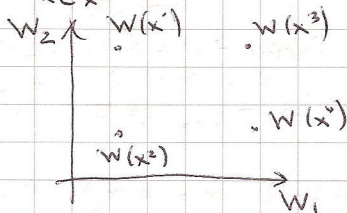 W₂ W(x¹) W(x³)
W(x²) W(x⁴)
W₁